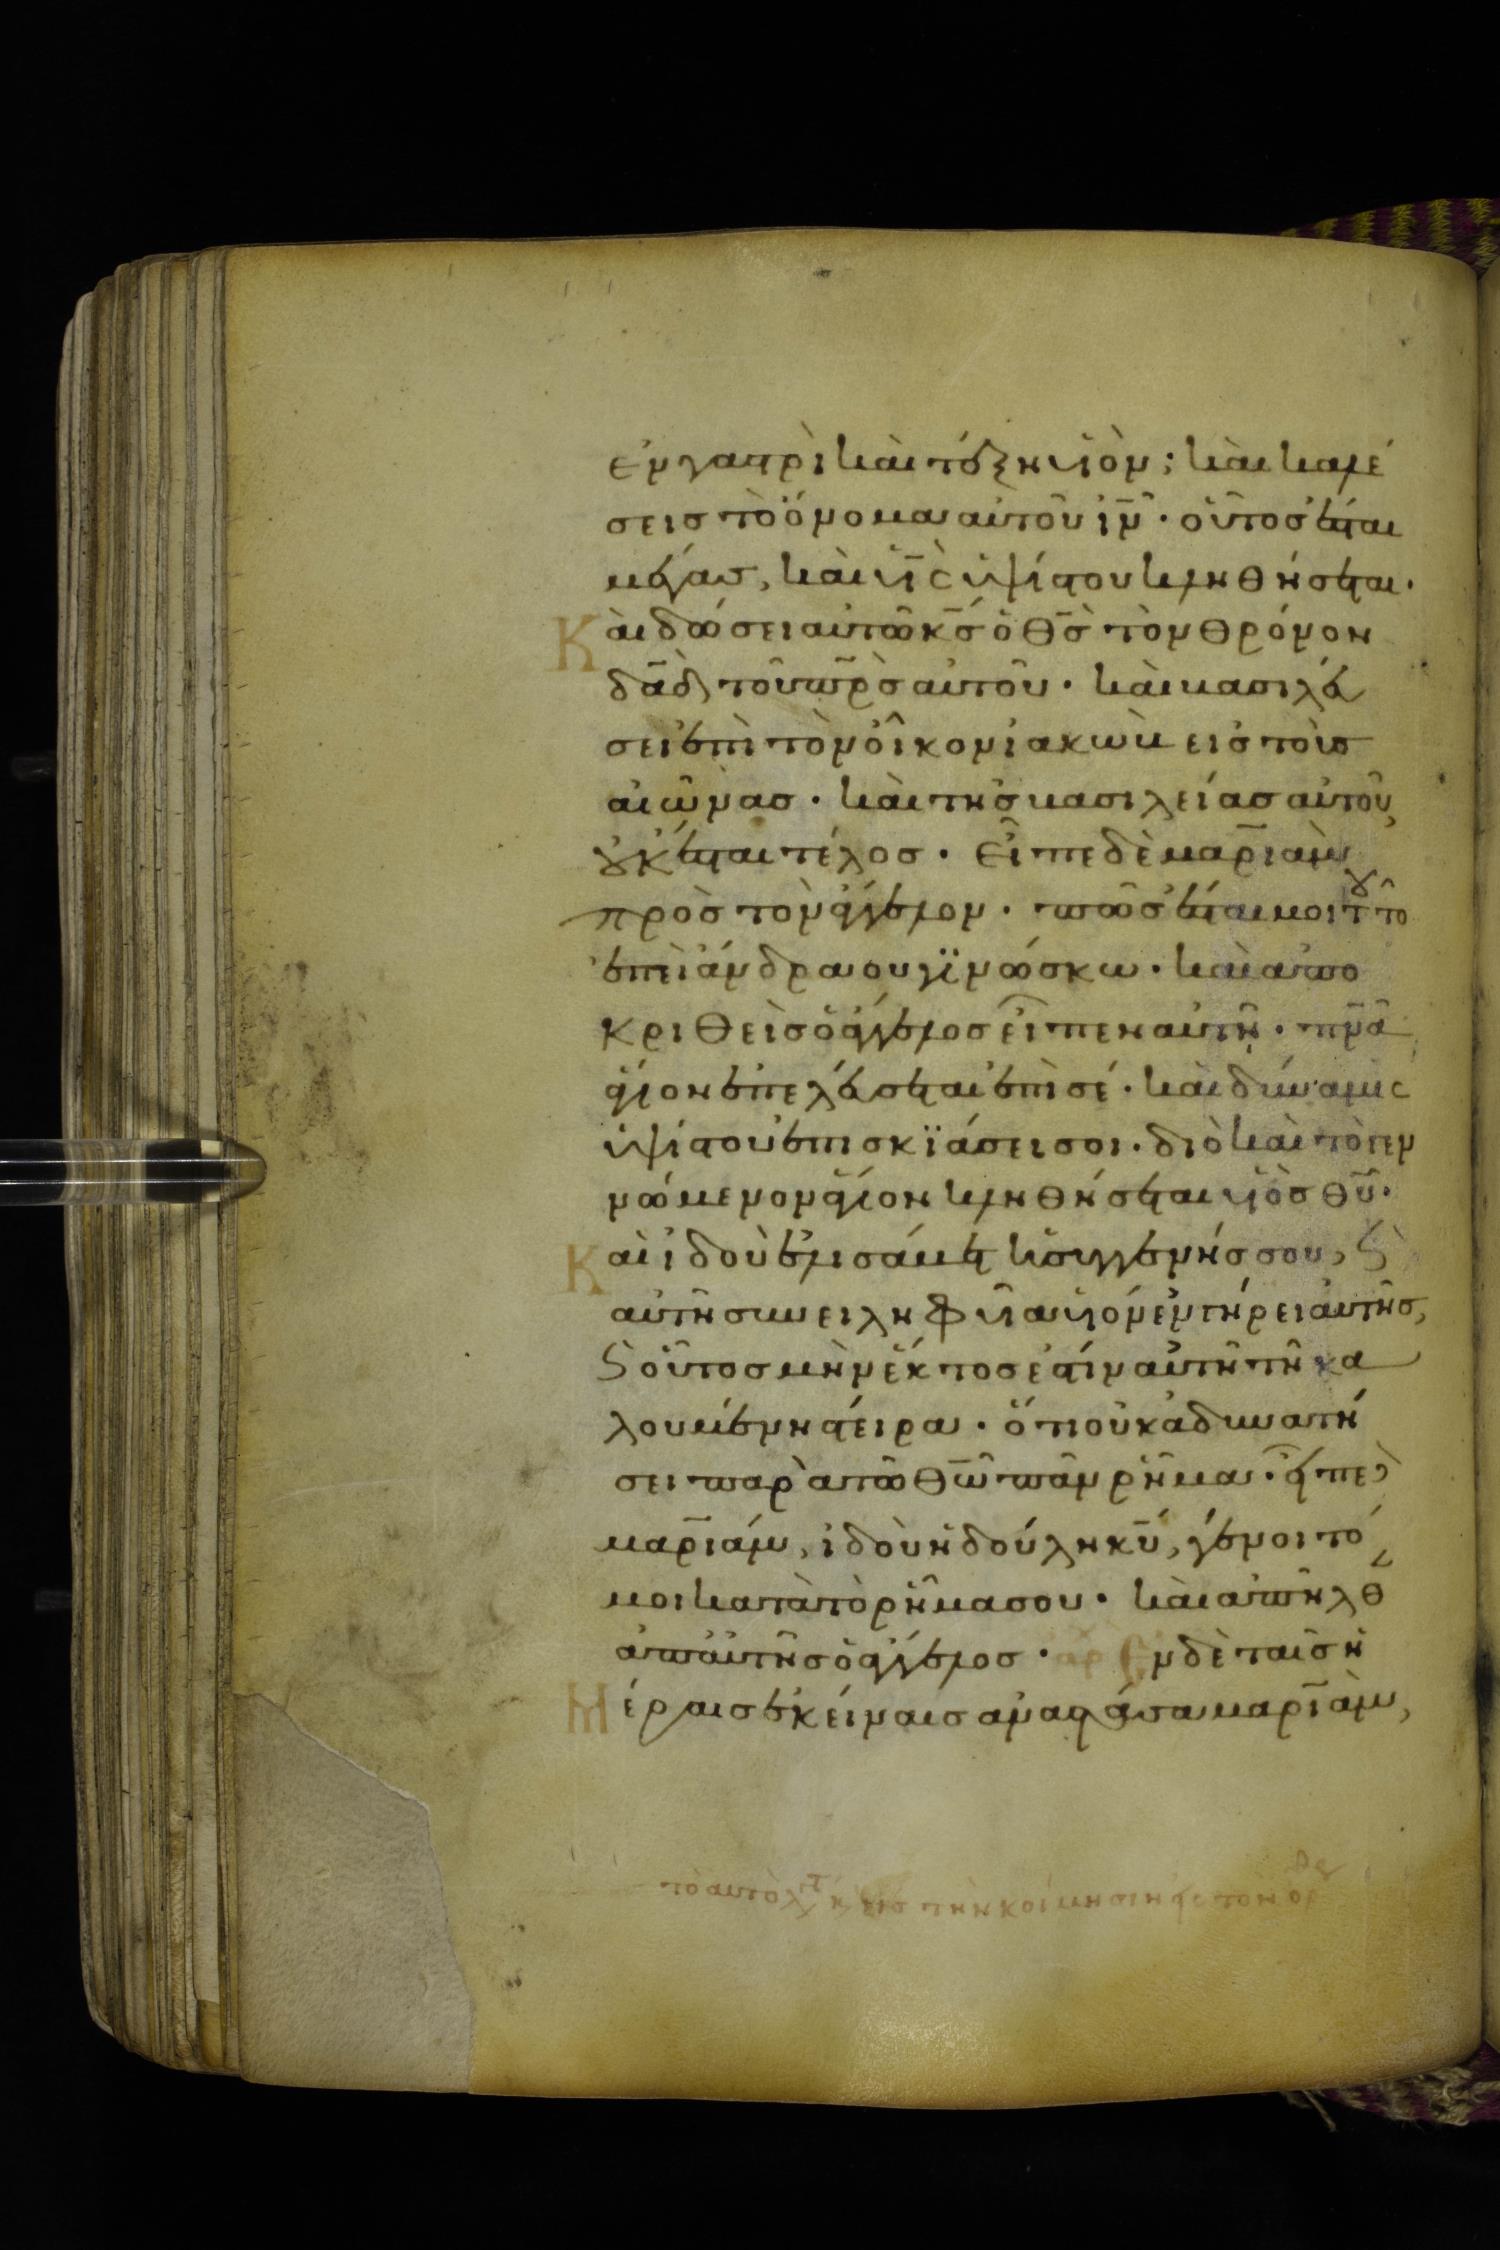 ἐν γαστρὶ καὶ τέξη υἱὸν; καὶ καλέ
σεις τὸ ὄνομα αὐτοῦ ἰν̄· οὗτος ἔσται
μέγας, καὶ υἱ̄ς ὑψίστου κληθήσεται·
Καὶ δώσει αὐτῶ κ̄ς ὁ θ̄ς τὸν θρόνον
δᾱδ τοῦ πρ̄ς αὐτοῦ· καὶ βασιλεύ
σει ἐπὶ τὸν οἶκον ἰακὼβ εἰς τοὺς
αἰῶνας· καὶ τῆς βασιλείας αὐτοῦ
οὐκ ἔσται τέλος· εἶπε δὲ μαριὰμ
πρὸς τὸν ἄγγελον· πῶς ἔσται μοι τοῦτο
ἐπεὶ ἄνδρα οὐ γϊνώσκω· καὶ ἀπο
κριθεὶς ὁ ἄγγελος εἶπεν αὐτῆ· πν̄α
ἅγιον ἐπελεύσεται ἐπὶ σέ· καὶ δύναμις
ὑψίστου ἐπισκϊάσει σοι· διὸ καὶ τὸ γεν
νώμενον ἅγιον κληθήσεται υἱὸς θ̄υ·
Καὶ ἰδοὺ ἐλισάβετ ἡ συγγενής σου, ϛ̀
αὐτὴ συνειληφυῖα υἱὸν ἐν γήρει αὐτῆς,
ϛ οὗτος μὴν ἕκτος ἐστὶν αὐτῆ τῆ κα
λουμένη στείρα· ὅτι οὐκ ἀδυνατή
σει παρὰ τῶ θ̄ω πᾶν ῥῆμα· εἶπε δὲ
μαριάμ, ἰδοὺ ἡ δούλη κ̄υ, γένοιτό
μοι κατὰ τὸ ῥῆμα σου· καὶ ἀπῆλθεν
ἀπ' αὐτῆς ὁ ἄγγελος· ἀρχ Ἐν δὲ ταῖς ἡ
Μέραις ἐκείναις ἀναστάσα μαριὰμ,